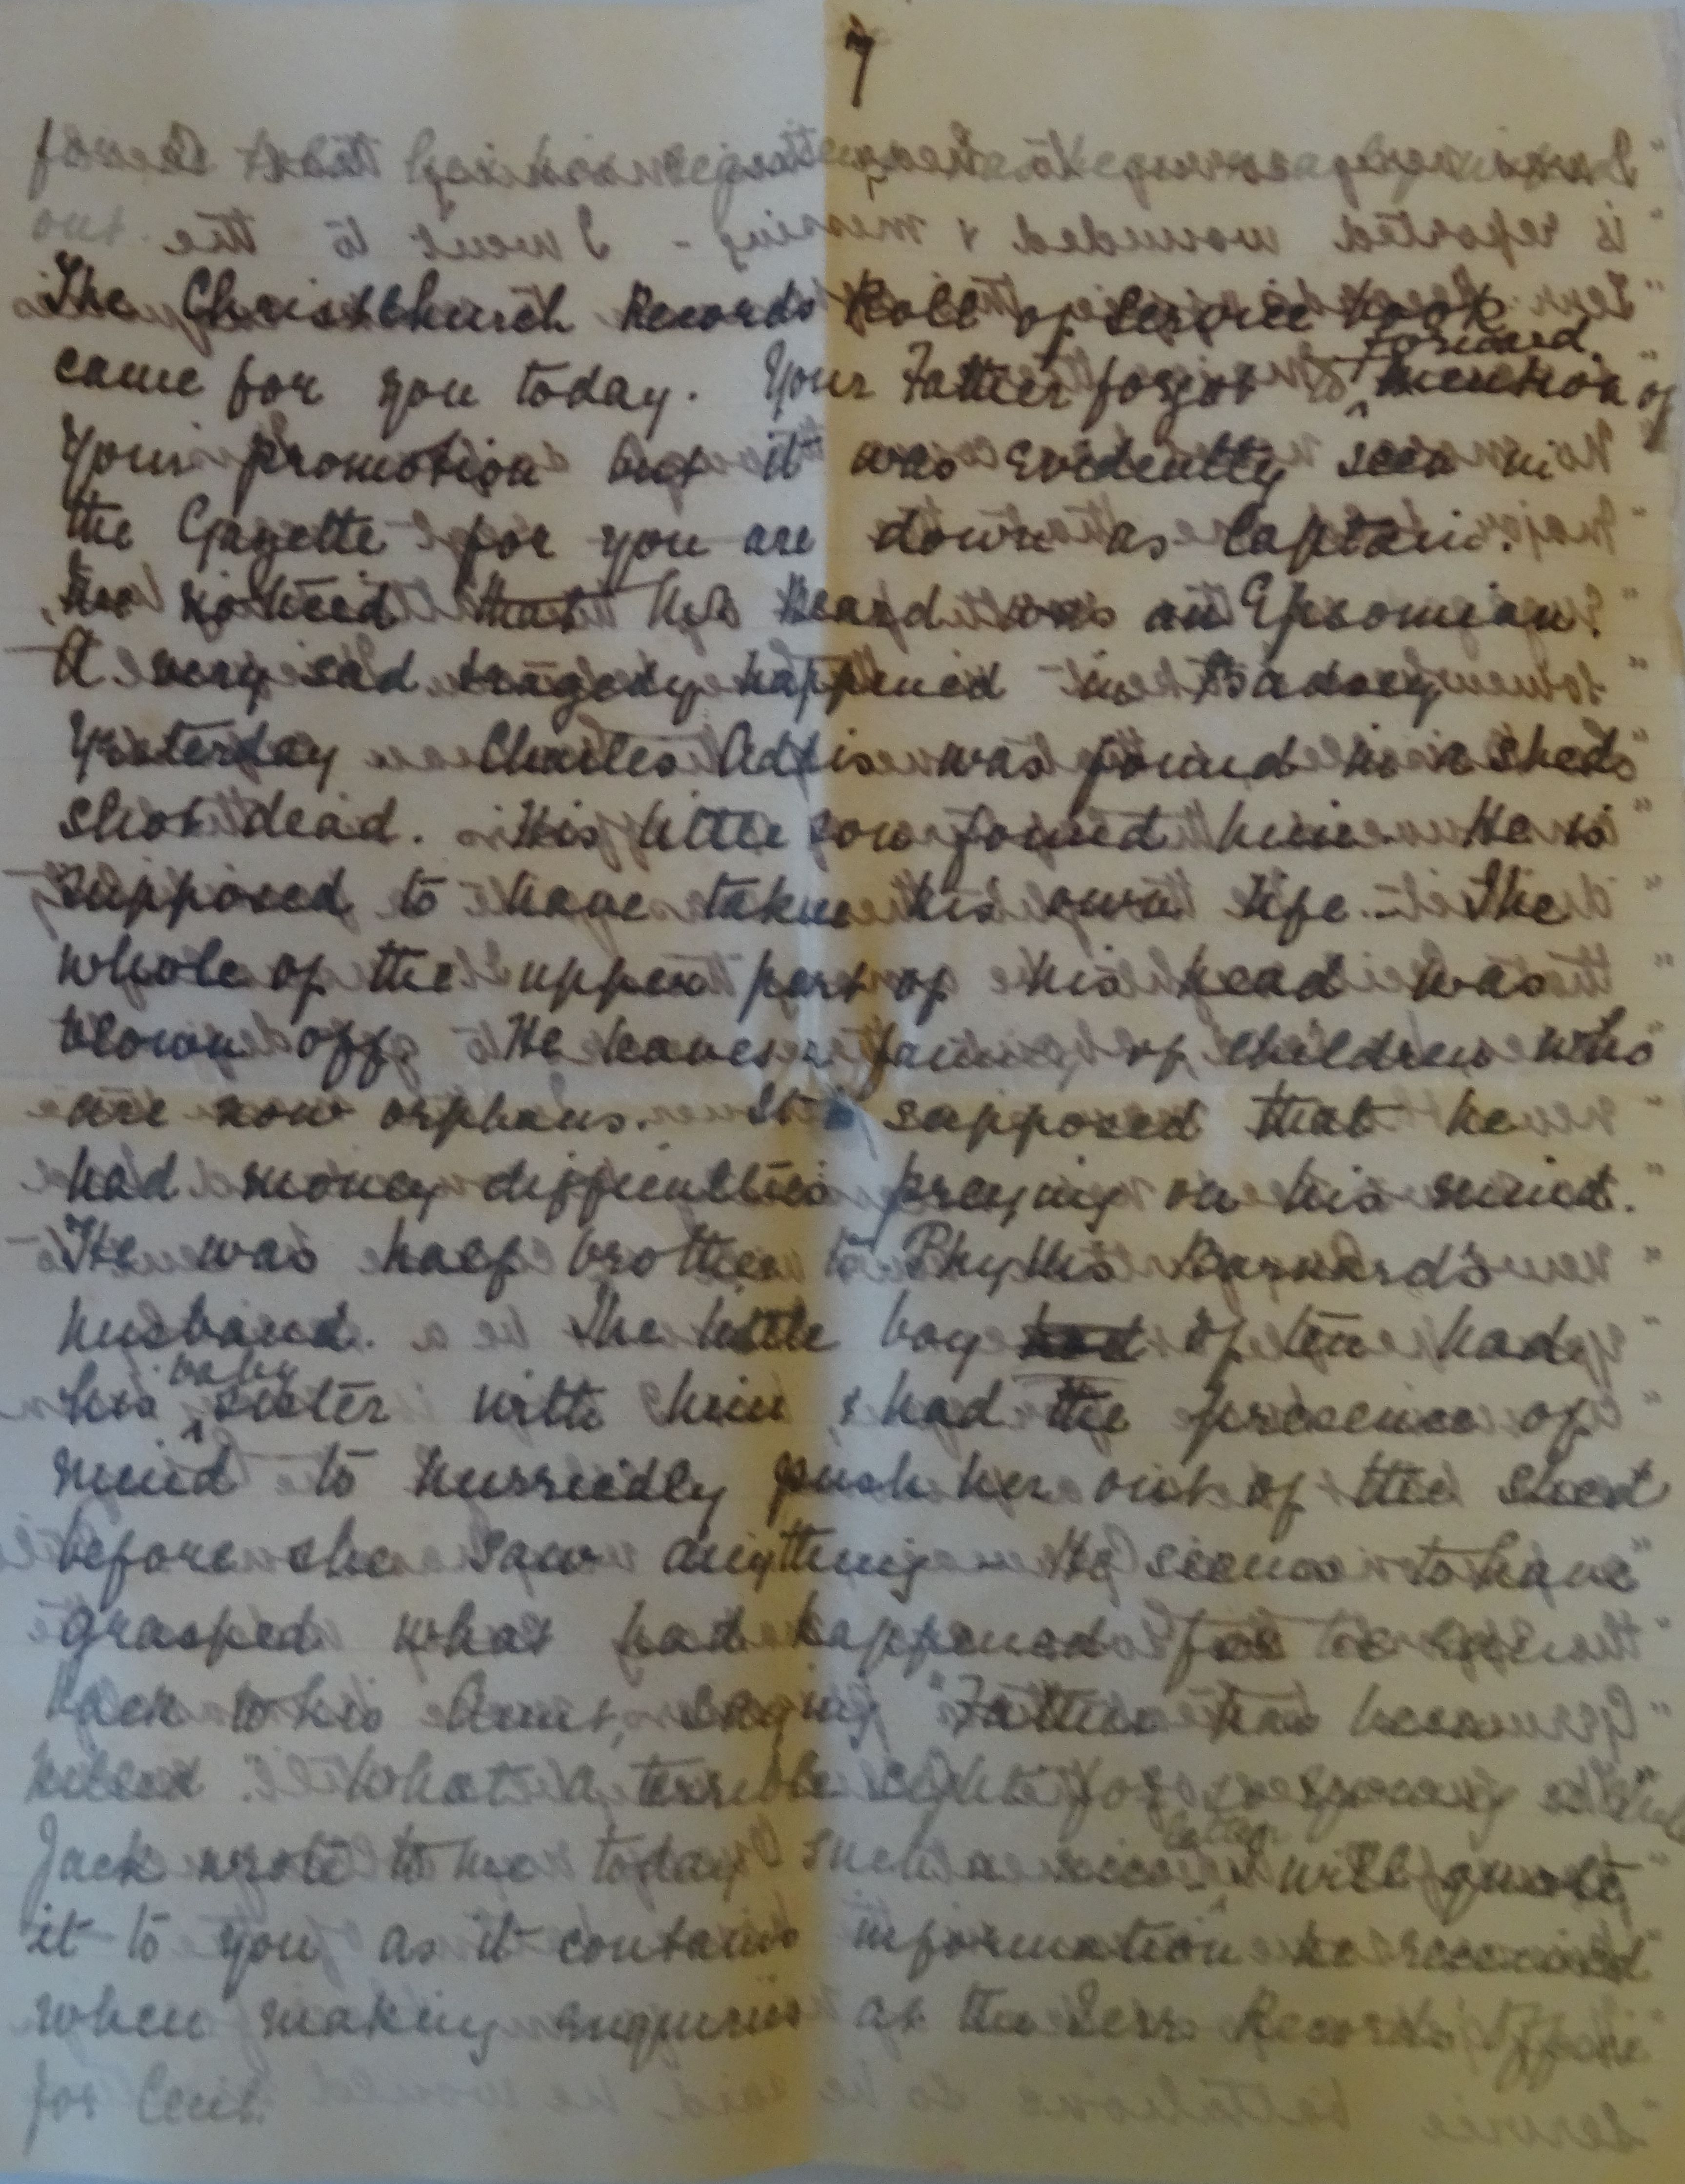 7
The Christchurch Records Roll of Service book
came for you today. Your Father forgot to ^ forward mention of
your promotion but it was evidently seen in
the Gazette for you are down as Captain.
noticed that Beard was an Epsomian.
A very sad tragedy happened in Badsey
yesterday Charles Addis was found in a shed
shot dead. His little son found him. He is
supposed to have taken his own life. The
whole of the upper part of his head was
blown off. He leaves a family of children who
are now orphans. It is supposed that he
had money difficulties preying on his mind.
He was half brother to Phyllis Barnard's
husband. The little boy had of ten had
his ^ baby sister with him, & had the presence of
mind to hurriedly push her out of the shed
before she saw anything. He seems to have
grasped what had happened for he
back to his Aunt, saying "Father has been
killed." What a terrible sight for so young a child
Jack wrote to me today such a nice ^ letter I will quote
it to you as it contains information he received
when making enquiries at the Terr. Records Office
for Cent.